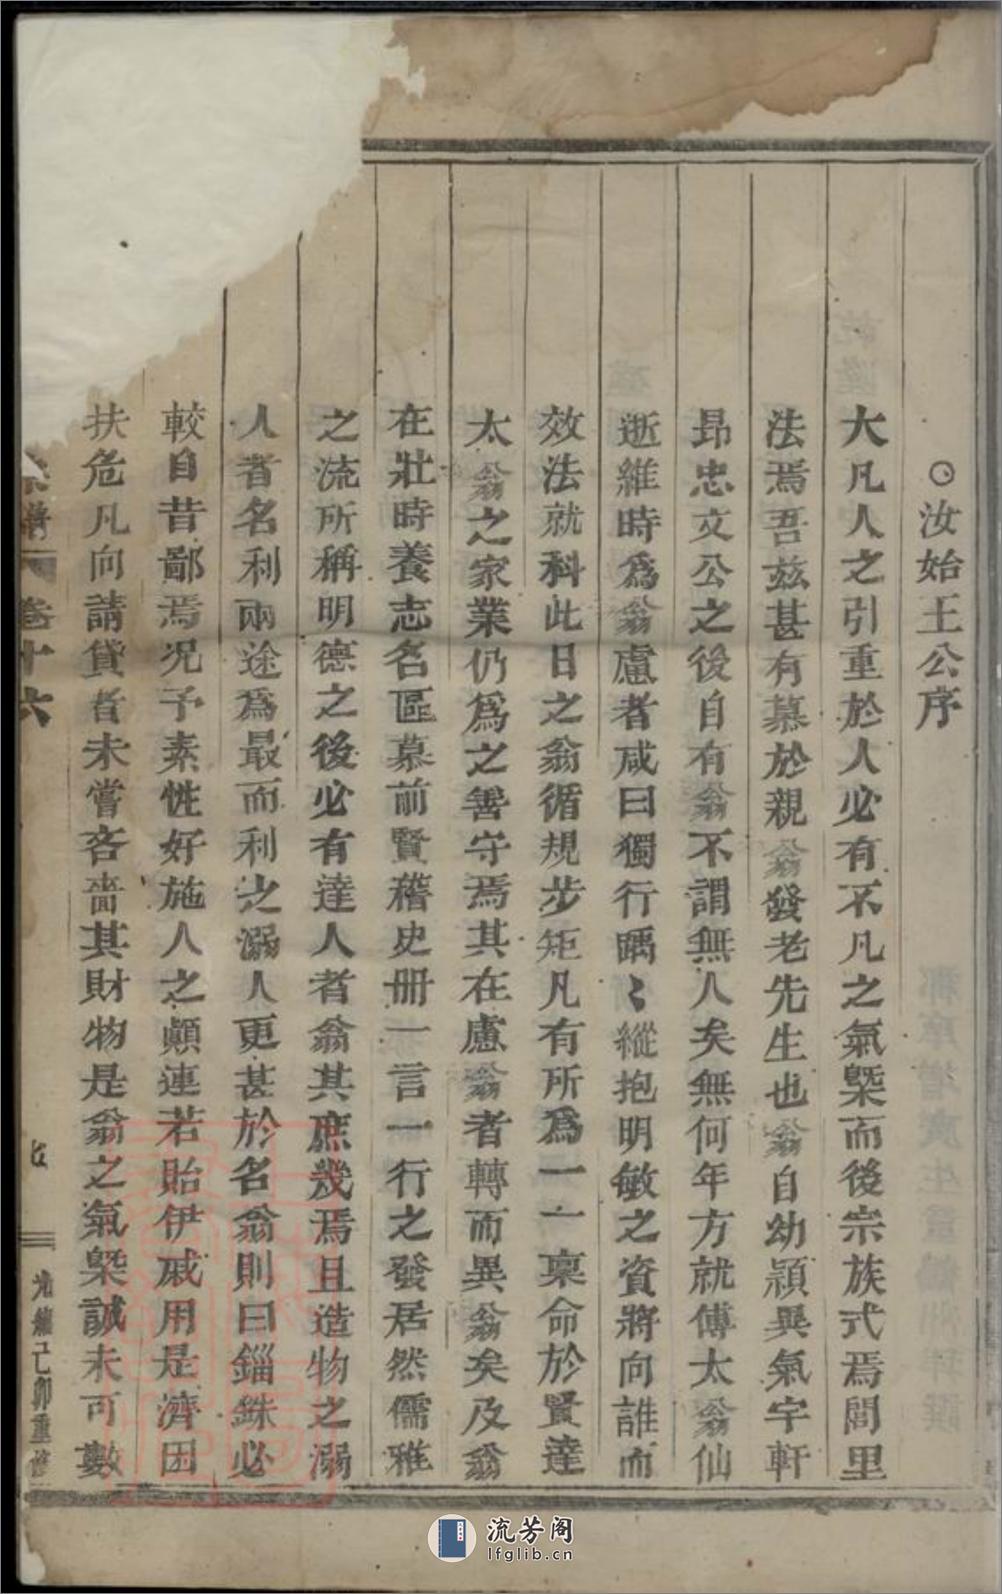 ○汝始王公序
大凡人之引重於人必有不凡之氣槩而後宗族式焉閭里
法焉吾茲甚有慕於親翁發老先生也翁自幼頴異氣宇軒
昂忠文公之後自有翁不謂無人矣無何年方就傅太翁仙
逝維時爲翁慮者咸曰獨行踽〻縱抱明敏之資將向誰而
效法就科此日之翁循規步矩凡有所爲一一稟命於賢達
太翁之家業仍爲之善守焉其在慮翁者轉而異翁矣及翁
在壯時養志名區慕前賢稽史册一言一行之發居然儒雅
之流所稱明德之後必有達人者翁其庶幾焉且造物之溺
人者名利兩途爲最而利之溺人更甚於名翁則曰錙銖必
較自昔鄙焉况予素性好施人之顚連若貽伊戚用是濟困
扶危凡向請貸者未嘗吝嗇其財物是翁之氣槩誠未可數
譜 卷十六 七 光緒己卯重修
流芳阁
lfglib.cn